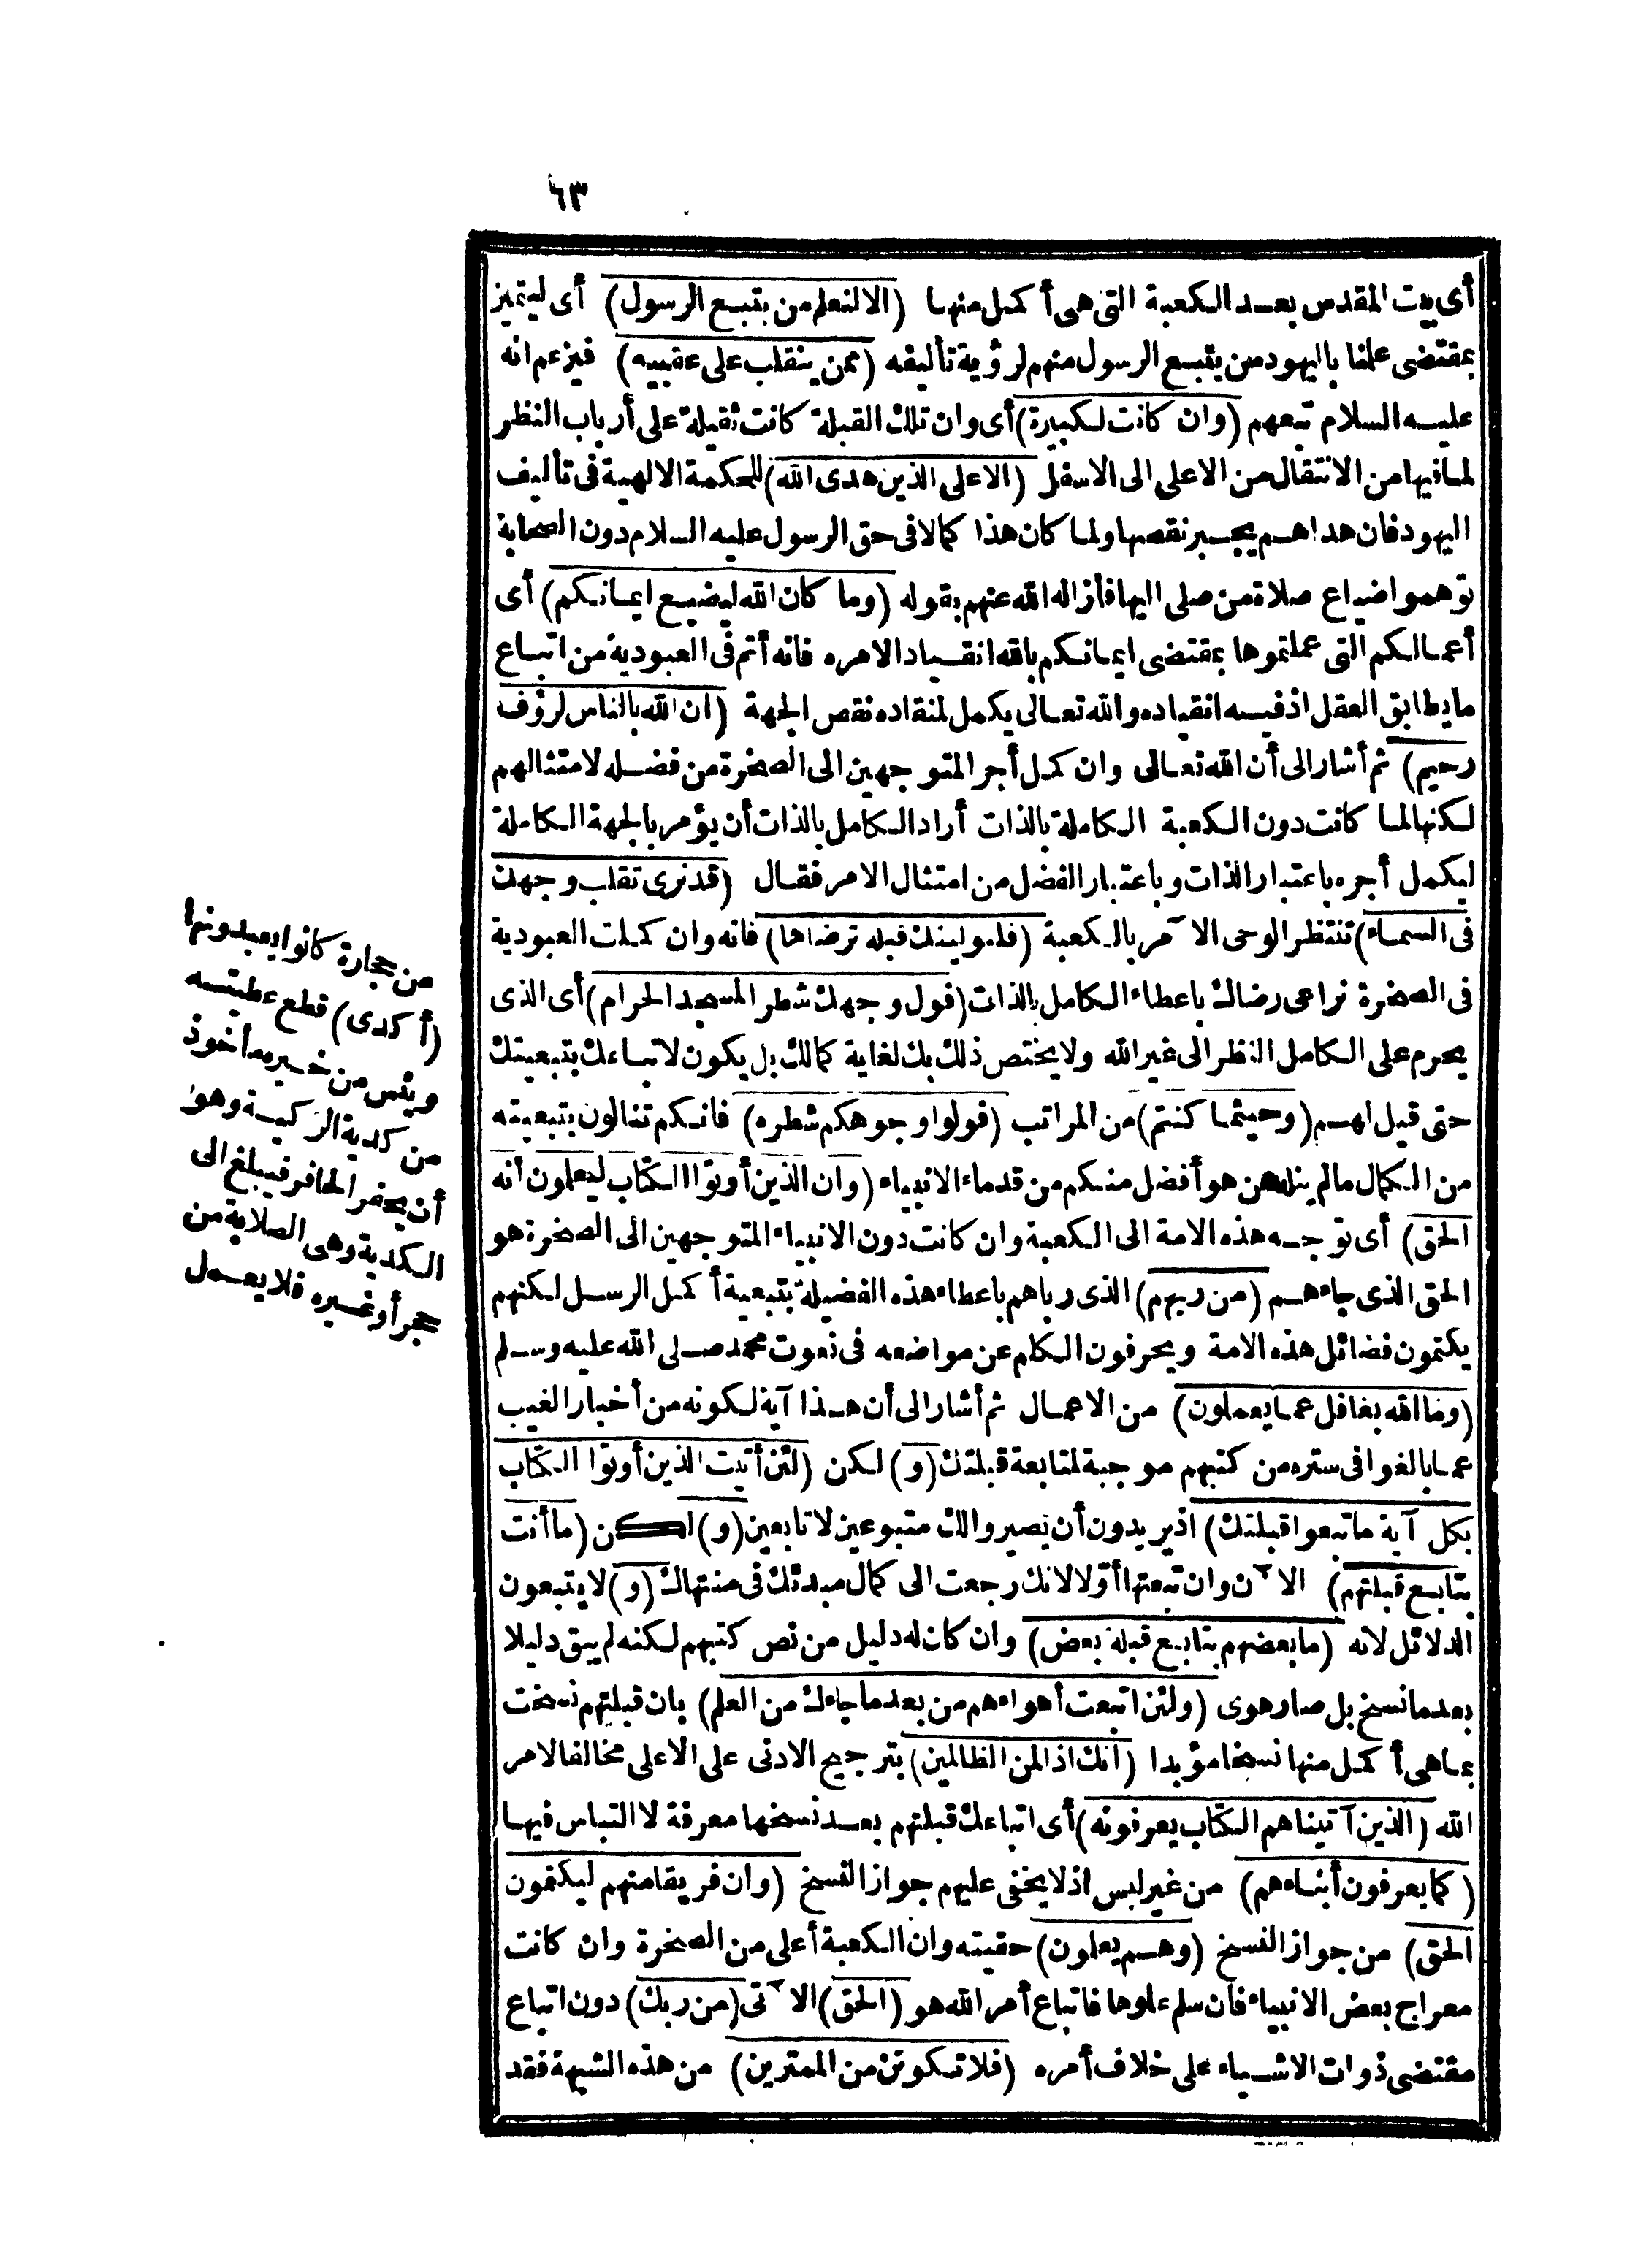 ٦٣
أى بيت المقدس بعد الكعبة التى هى أكمل منها (الا لنعلم من يتبع الرسول) أى ليتميز
بمقتضى علمنا باليهود من يتبع الرسول منهم لرؤية تأليفه (ممن ينقلب على عقبيه) فيزعم انه
عليه السلام تبعهم (وان كانت لكبيرة) أى وان تلك القبلة كانت ثقيلة على أرباب النظر
لما فيها من الانتقال من الاعلى الى الاسفل (الا على الذين هدى الله) للحكمة الالهية فى تأليف
اليهود فان هداهم يجبر نقصها ولما كان هذا كمالا فى حق الرسول عليه السلام دون الصحابة
توهموا ضياع صلاة من صلى اليها فأزاله الله عنهم بقوله (وما كان الله ليضيع ايمانكم) أى
أعمالكم التى عملتموها بمقتضى ايمانكم بالله انقيادا لامره فانه أتم فى العبودية من اتباع
ما يطابق العقل اذ فيه انقياده والله تعالى يكمل لمنقاده نقص الجهة (ان الله بالناس لرؤف
رحيم) ثم أشار الى أن الله تعالى وان كمل أجر المتوجهين الى الصخرة من فضله لامتثالهم
لكنها لما كانت دون الكعبة الكاملة بالذات أراد الكامل بالذات أن يؤمر بالجهة الكاملة
ليكمل أجره باعتبار الذات وباعتبار الفضل من امتثال الامر فقال (قد نرى تقلب وجهك
فى السماء) تنتظر الوحى الآمر بالكعبة (فلنولينك قبلة ترضاها) فانه وان كملت العبودية
فى الصخرة نراعى رضاك باعطاء الكامل بالذات (فول وجهك شطر المسجد الحرام) أى الذى
يحرم على الكامل النظر الى غير الله ولا يختص ذلك بك لغاية كمالك بل يكون لاتباعك بتبعيتك
حتى قيل لهم (وحيثما كنتم) من المراتب (فولوا وجوهكم شطره) فانكم تنالون بتبعيته
من الكمال ما لم ينله من هو أفضل منكم من قدماء الانبياء (وان الذين أوتوا الكتاب ليعلمون أنه
الحق) أى توجه هذه الامة الى الكعبة وان كانت دون الانبياء المتوجهين الى الصخرة هو
الحق الذى جاءهم (من ربهم) الذى رباهم باعطاء هذه الفضيلة بتبعية أكمل الرسل لكنهم
يكتمون فضائل هذه الامة ويحرفون الكلم عن مواضعه فى نعوت محمد صلى الله عليه وسلم
(وما الله بغافل عما يعملون) من الاعمال ثم أشار الى أن هذا آية لكونه من أخبار الغيب
عما بالغوا فى ستره من كتبهم موجبة لمتابعة قبلتك (و) لكن (لئن أتيت الذين أوتوا الكتاب
بكل آية ما تبعوا قبلتك) اذ يريدون أن تصيروا لك متبوعين لا تابعين (و) لكن (ما أنت
بتابع قبلتهم) الآن وان تبعتها أولا لانك رجعت الى كمال مبدئك فى منتهاك (و) لا يتبعون
الدلائل لانه (ما بعضهم بتابع قبلة بعض) وان كان له دليل من نص كتبهم لكنه لم يبق دليلا
بعد ما نسخ بل صار هوى (ولئن اتبعت أهواءهم من بعد ما جاءك من العلم) بان قبلتهم نسخت
بما هى أكمل منها نسخا مؤبدا (انك اذا لمن الظالمين) بترجيح الادنى على الاعلى مخالفا لامر
الله (الذين آتيناهم الكتاب يعرفونه) أى اتباعك قبلتهم بعد نسخها معرفة لا التباس فيها
(كما يعرفون أبناءهم) من غير لبس اذ لا يخفى عليهم جواز النسخ (وان فريقا منهم ليكتمون
الحق) من جواز النسخ (وهم يعلمون) حقيته وان الكعبة أعلى من الصخرة وان كانت
معراج بعض الانبياء فان سلم علوها فاتباع أمر الله هو (الحق) الآتى (من ربك) دون اتباع
مقتضى ذوات الاشياء على خلاف أمره (فلا تكونن من الممترين) من هذه الشبهة فقد
من حجارة كانوا يعبدونها
(أكدى) قطع عطيته
ويئس من خيره مأخوذ
من كدية الركية وهو
أن يحفر الحافر فيبلغ الى
الكدية وهى الصلابة من
حجر أو غيره فلا يعمل